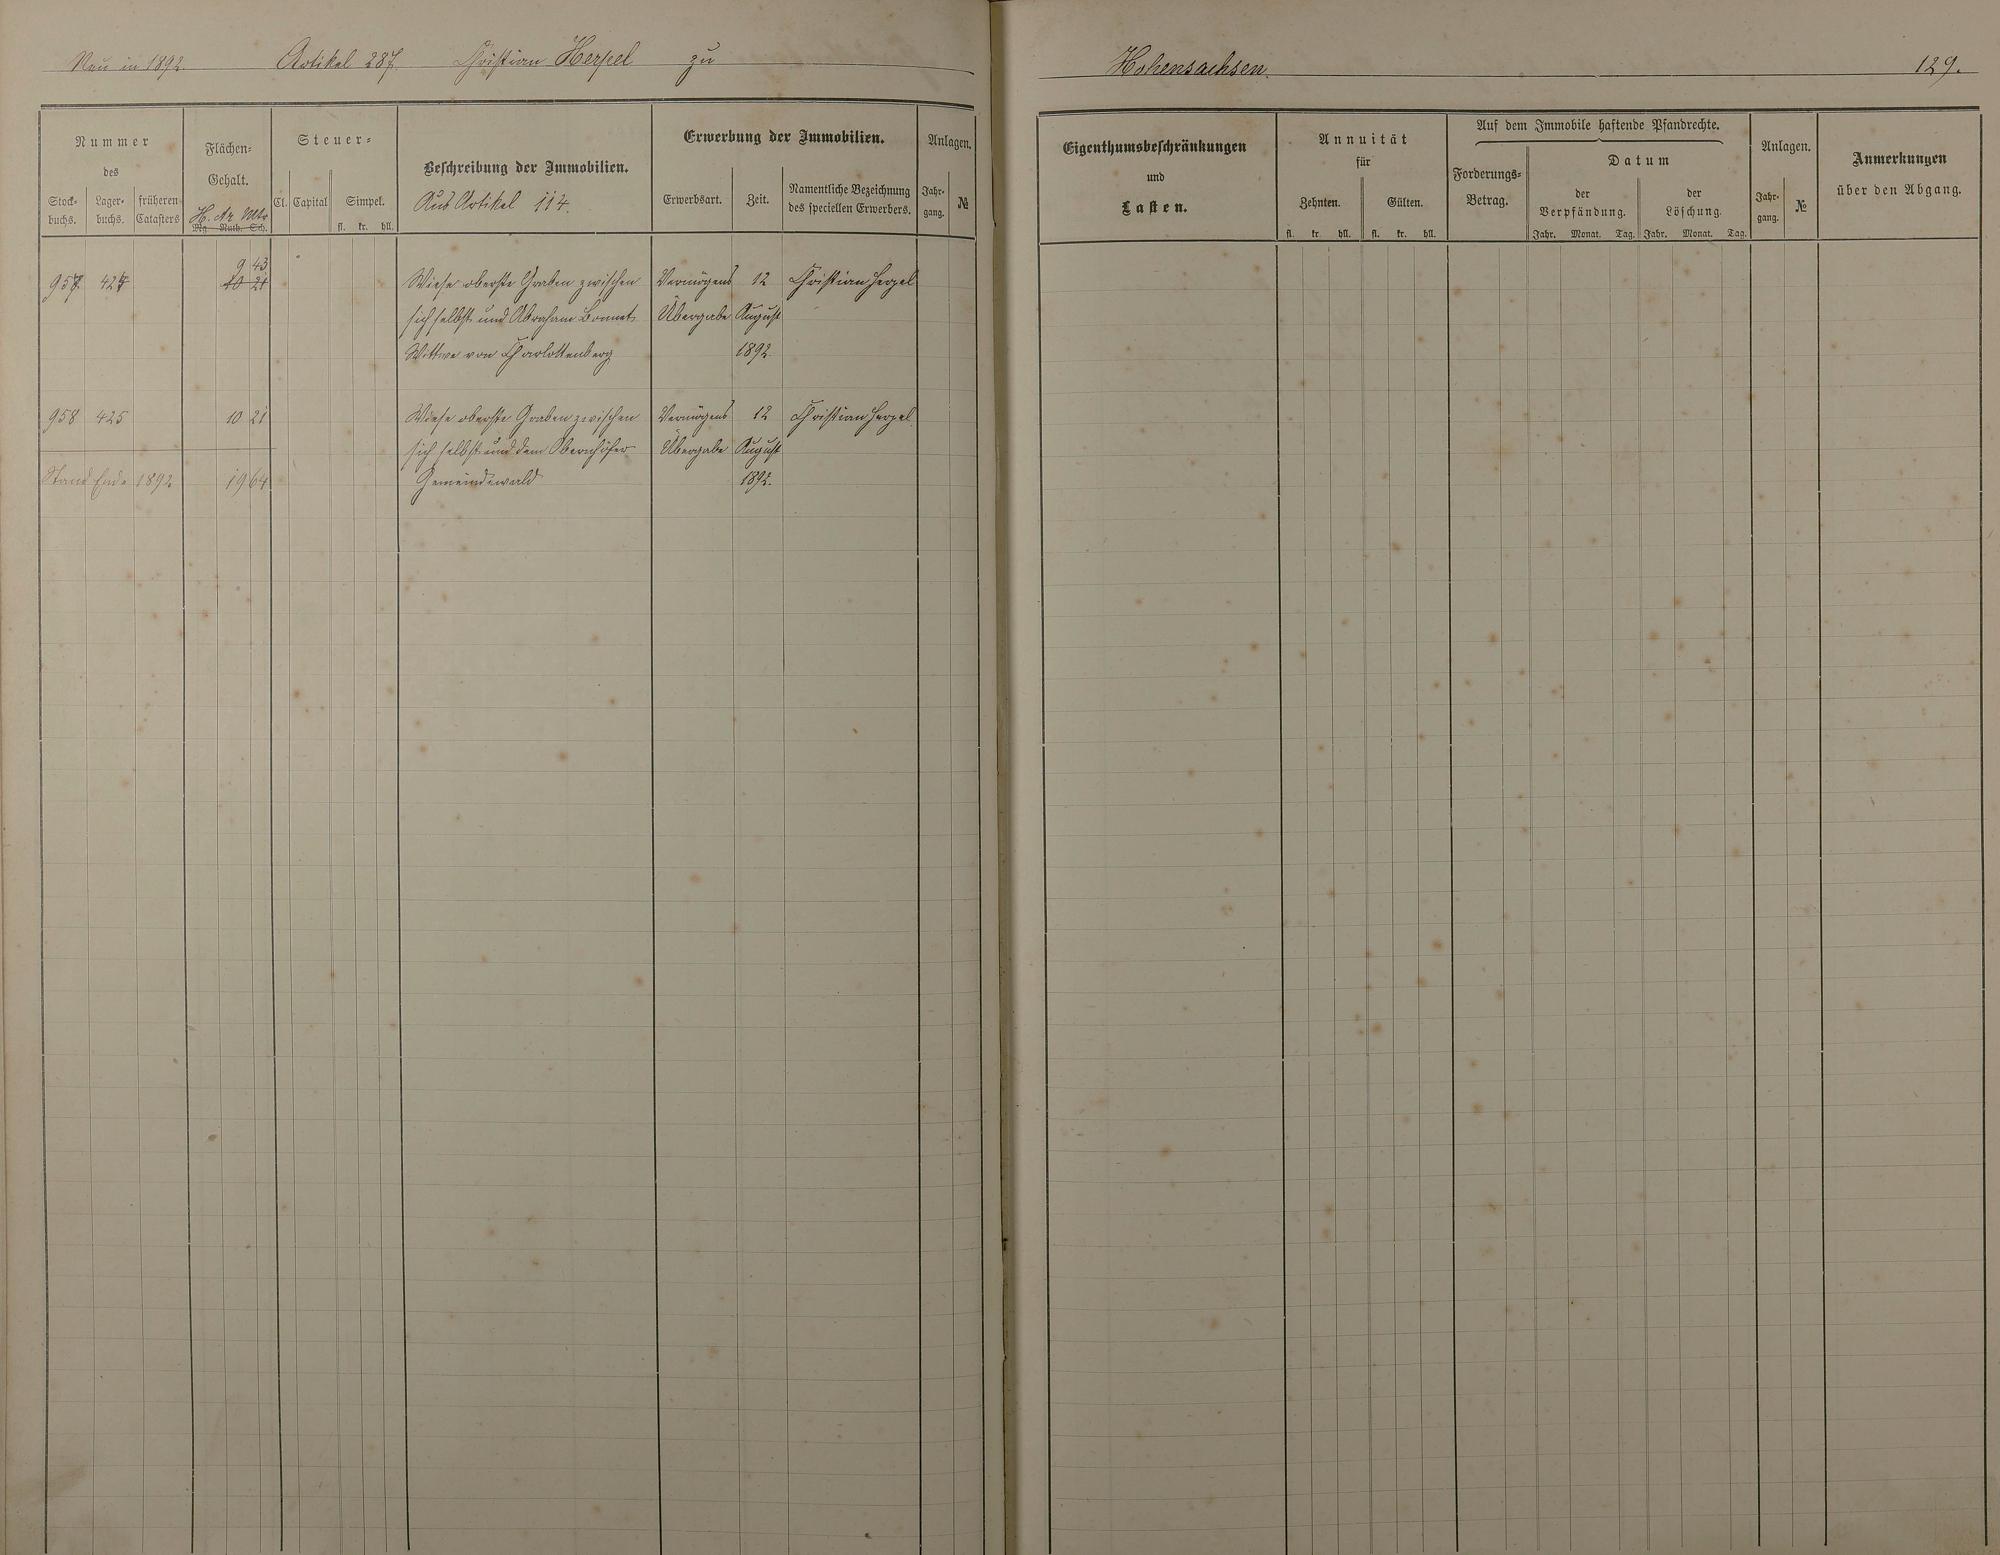 Neu in 1892. Artikel 287. Christian Herpel zu
Hohensachsen. 129.
Nummer
des
Stock-
buchs.
Lager-
buchs.
früheren
Catasters
Flächen-
Gehalt.
H. Ar Mtr
Mg. Ruth. Sch.
Steuer-
Cl. Capital Simpel.
fl. kr. hll.
Beschreibung der Immobilien.
Aus Artikel 114.
Erwerbung der Immobilien.
Erwerbsart. Zeit.
Namentliche Bezeichnung
des speciellen Erwerbers.
Anlagen.
Jahr-
gang.
№
Eigenthumsbeschränkungen
und
Lasten.
Annuität
für
Zehnten. Gülten.
fl. kr. hll. fl. kr. hll.
Auf dem Immobile haftende Pfandrechte.
Forderungs-
Betrag.
Datum
der
Verpfändung.
der
Löschung.
Jahr. Monat. Tag. Jahr. Monat. Tag.
Anlagen.
Jahr-
gang.
№
Anmerkungen
über den Abgang.
9 43
957 424 10 21 Wiese oberste Graben zwischen Vermögens 12 Christian Herpel
sich selbst und Abraham Bonnet Übergabe August
Wittwe von Charlottenberg 1892.
958 425 10 21 Wiese oberste Graben zwischen Vermögens 12 Christian Herpel
sich selbst und dem Obernhöfer Übergabe August
Stand Ende 1892 19 64 Gemeindewald 1892.